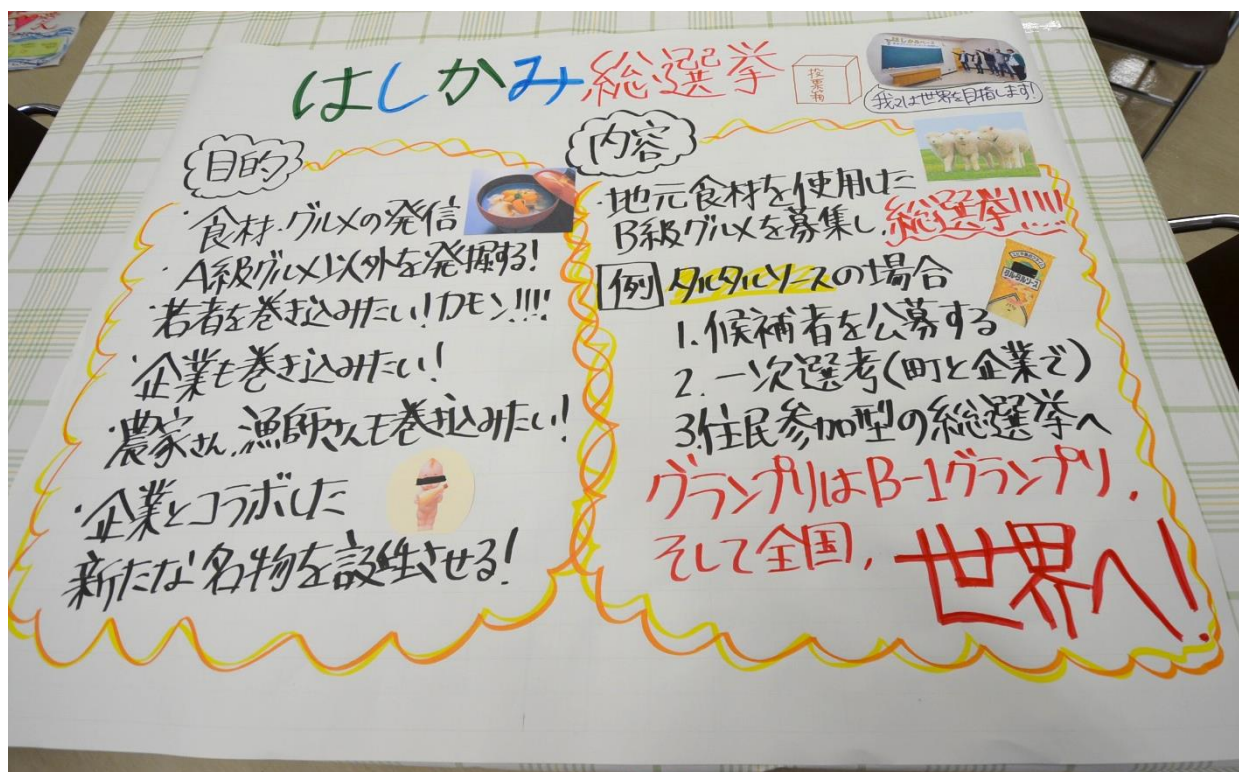 はしかみ総選挙
投票箱
我々は世界を目指します!
目的
・食材・グルメの発信
・A級グルメ以外を発掘する!
・若者を巻き込みたい!カモン!!!!
・企業も巻き込みたい!
・農家さん、漁師さんも巻き込みたい!
・企業とコラボした
新たな名物を誕生させる!
内容
・地元食材を使用した
B級グルメを募集し、総選挙!!!!!
例 タルタルソースの場合
タルタルソース
1.候補者を公募する
2.一次選考(町と企業で)
3.住民参加型の総選挙へ
グランプリはB-1グランプリ、
そして全国、世界へ!